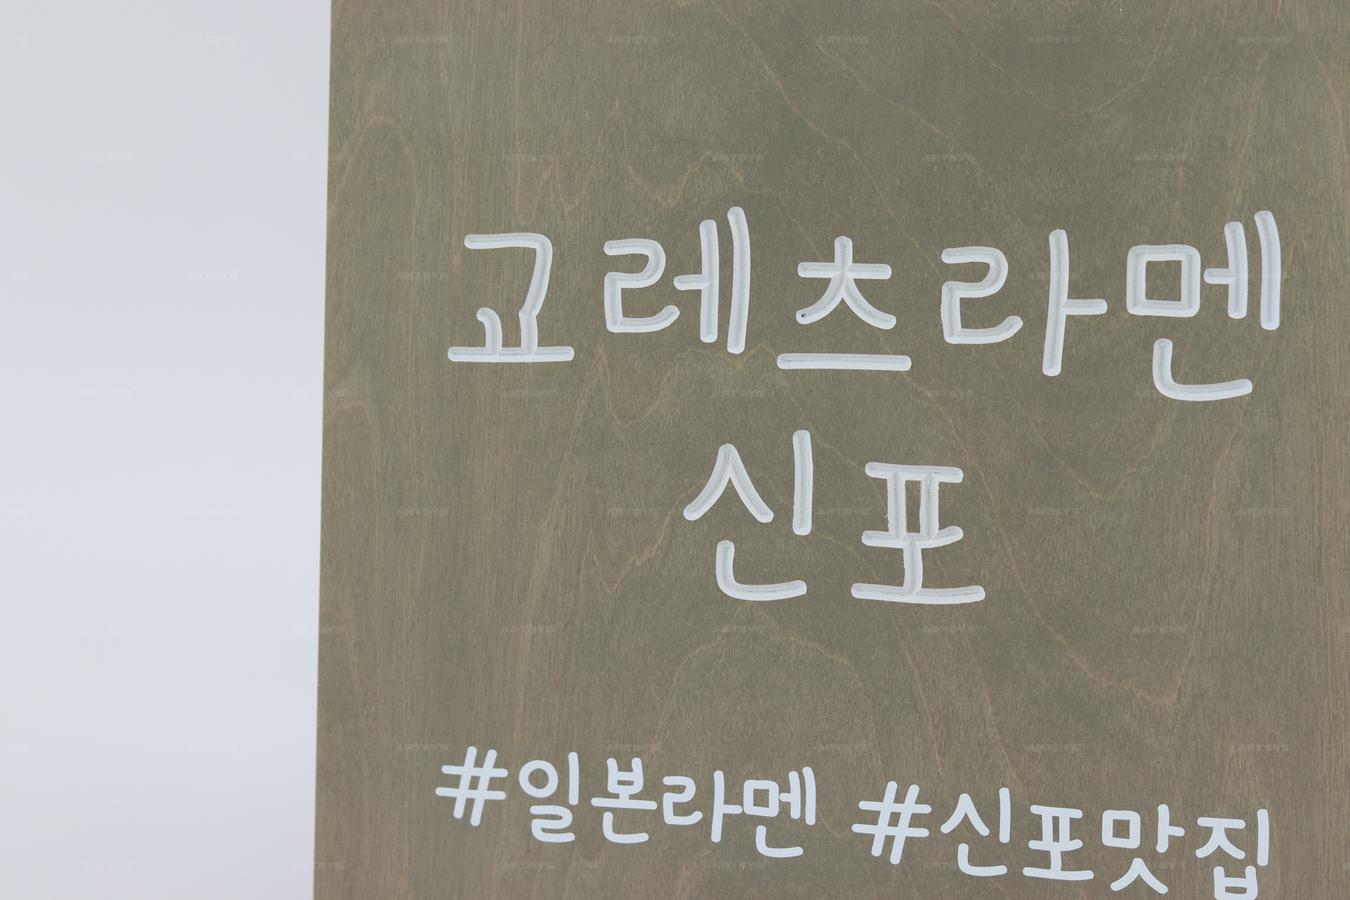 교레츠라멘
신포
#일본라멘 #신포맛집